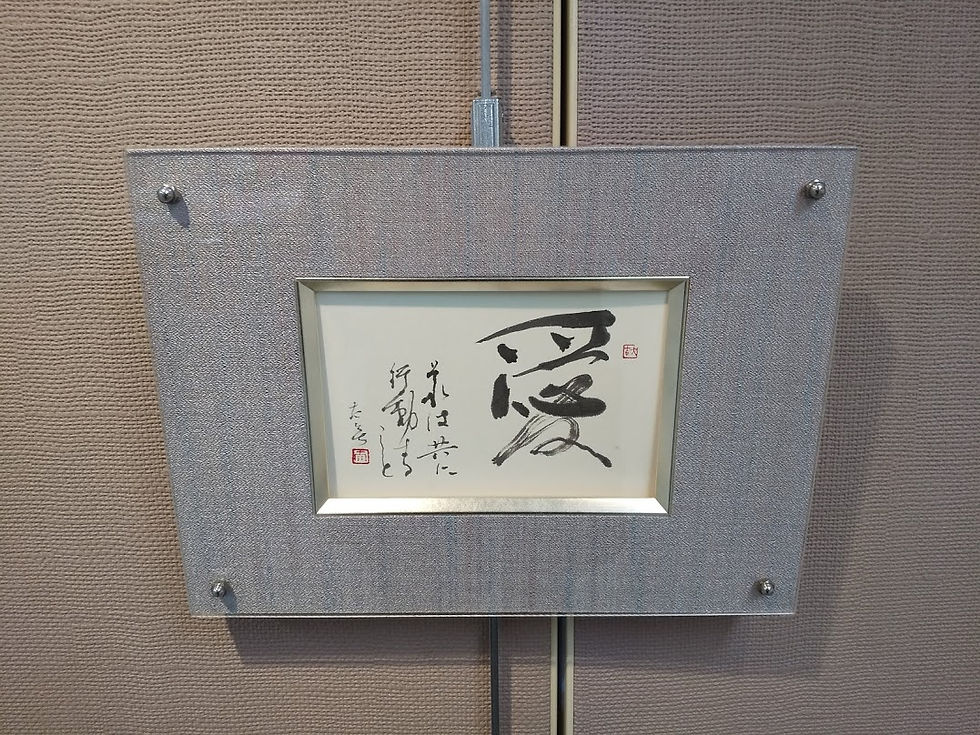 愛
それは共に
行動する
こと